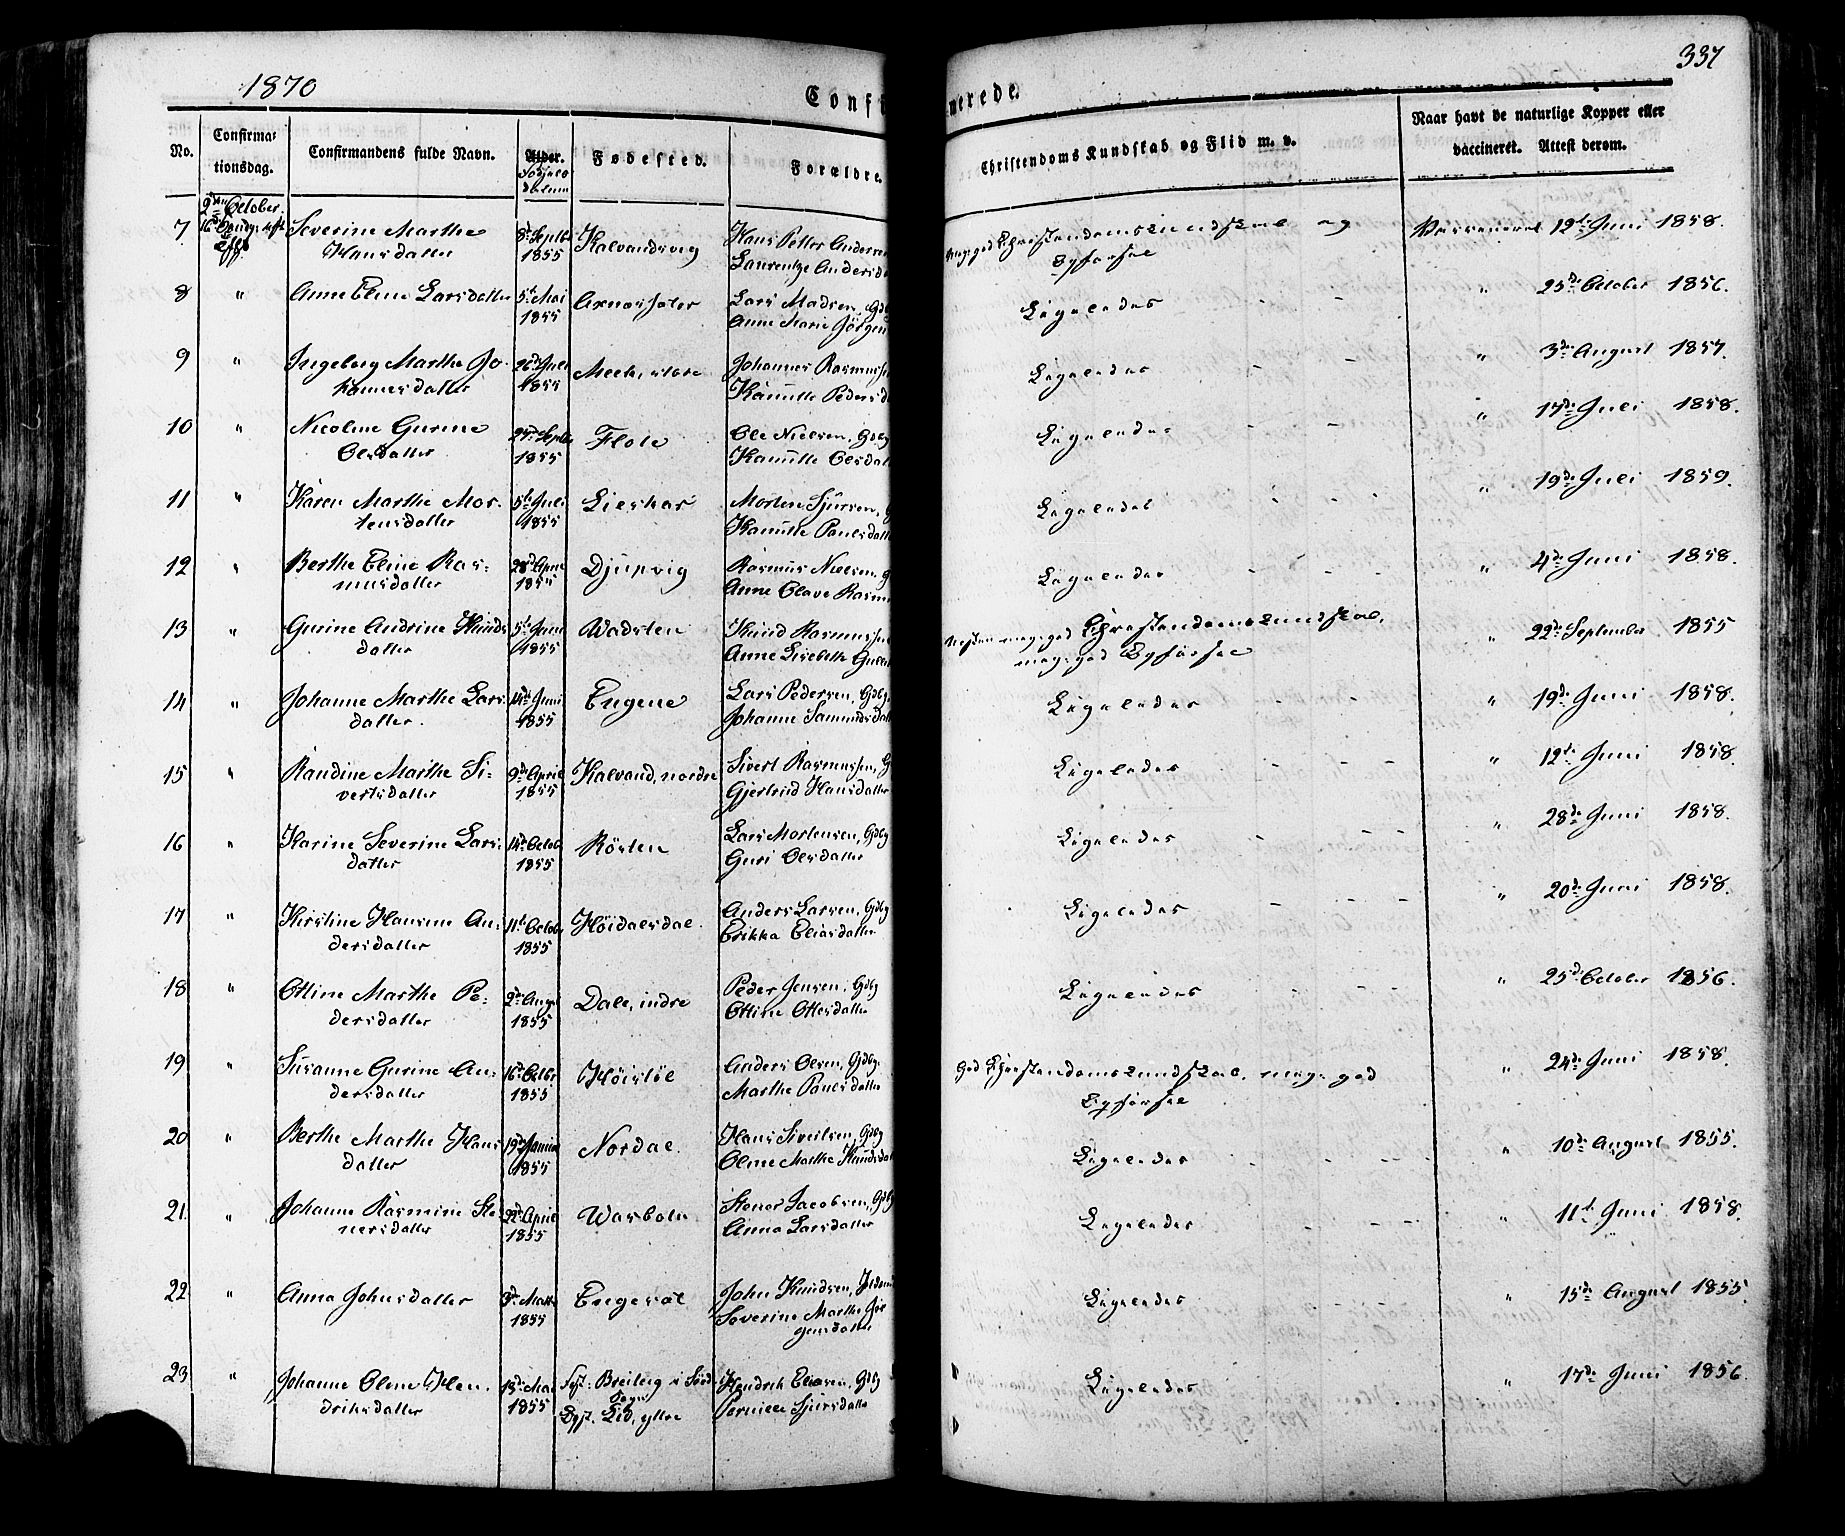 1870
337
Confi
merede.
No.
Confirma-
tionsdag.
Confirmandens fulde Navn.
Alder.
Fødselsdatum
Fødested.
Forældre.
Christendoms Kundskab og Flid m. v.
Naar havt de naturlige Kopper eller
vaccineret. Attest derom.
9de October
16de Søndag eft
7 Severine Marthe Hansdatter 8de Septbr 1855 Kalvandsvig Hans Petter Andersen Laurentze Andersd Meget god Christendomskundskab og Vaccineret 12te Juni 1858.
8 " Anne Eline Larsdatter 5te Mai 1855 Axnæssæter Lars Madsen, Gdb Anne Marie Jörgen Ligeledes - - " 25de October 1856.
9 " Ingeborg Marthe Johannesdatter 26de Juli 1855 Mæk, store Johannes Rasmussen Kanutte Pedersd Ligeledes - - " 3de August 1857.
10 " Nicoline Gurine Olsdatter 27de Septbr 1855 Flote Ole Nielsen, Gdbg Kanutte Olsdat Ligeledes - - " 17de Juli 1858.
11 " Karen Marthe Mortensdatter 5te Juli 1855 Lieskar Morten Sjursen, G Kanutte Paulsdatt Ligeledes - - " 19de Juli 1859.
12 " Berthe Eline Rasmusdatter 28de April 1855 Djupvig Rasmus Nielsen, G Anne Olave Rasmu Ligeledes - - " 4de Juni 1858.
13 " Gurine Andrine Knudsdatter 5te Juni 1855 Wadsten Knud Rasmussen Anne Lisebeth Gulle Næsten meget god Christendomskundskab, meget god " 22de September 1855
14 " Johanne Marthe Larsdatter. 14de Juni 1855 Engene Lars Pedersen, Gdbg Johanne Samundsdatt Ligeledes - - " 19de Juni 1858.
15 " Randine Marthe Sivertsdatter 9de April 1855 Kalvand, nordre Sivert Rasmussen, G Gjertrud Hansdatter Ligeledes - - " 12te Juni 1858.
16 " Karine Severine Larsdatter 14de Octob 1855 Rösten Lars Mortensen, Gdbg Guri Olsdatter Ligeledes - - " 28de Juni 1858.
17 " Kirstine Hansine Andersdatter 11te Octob 1855 Höidalsdal. Anders Larsen, Gdbg Erikka Eliasdatter Ligeledes - - " 20de Juni 1858.
18 " Ottine Marthe Pedersdatter 2de Augst 1855 Dale, indre Peder Jensen, Gdbg Ottine Ottesdatter Ligeledes - - " 25de October 1856.
19 " Susanne Gurine Andersdatter 16de Octbr 1855 Höistöl Anders Olsen, Gdbg. Marthe Paulsdatter God Christendomskundskab, meget god " 24de Juni 1858.
20 " Berthe Marthe Hansdatter 19de Januar 1855 Nordal. Hans Sivertsen, Gdbg Oline Marthe Knudsdat Ligeledes - - " 10de August 1855.
21. " Johanne Rasmine Stenersdatter 22de April 1855 Wasbotn Stener Jacobsen, Gdbg Anna Larsdatter Ligeledes - - " 11te Juni 1858.
22. " Anna Johnsdatter 3de Marts 1855 Engesæt John Knudsen, Severine Marthe Jörgensdatter Ligeledes - - " 15de August 1855.
23 " Johanne Oline Hendriksdatter 13de Mai 1855 Föst. Breiteig i Sönd- Sogn Opf. Lid, ytre Hendrik Eliasen, Gdbg Pernille Sjursdatter Ligeledes - - " 17de Juni 1856.